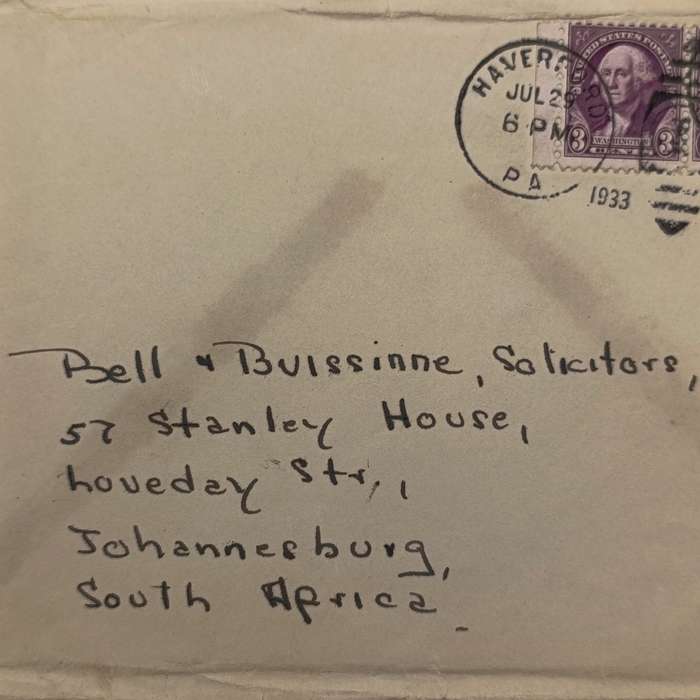 HAVERFORD
JUL 29
6 PM
PA
1933
UNITED STATES POSTAGE
3 WASHINGTON 3
CENTS
Bell & Buissinne, Solicitors,
57 Stanley House,
Loveday Str.,
Johannesburg,
South Africa